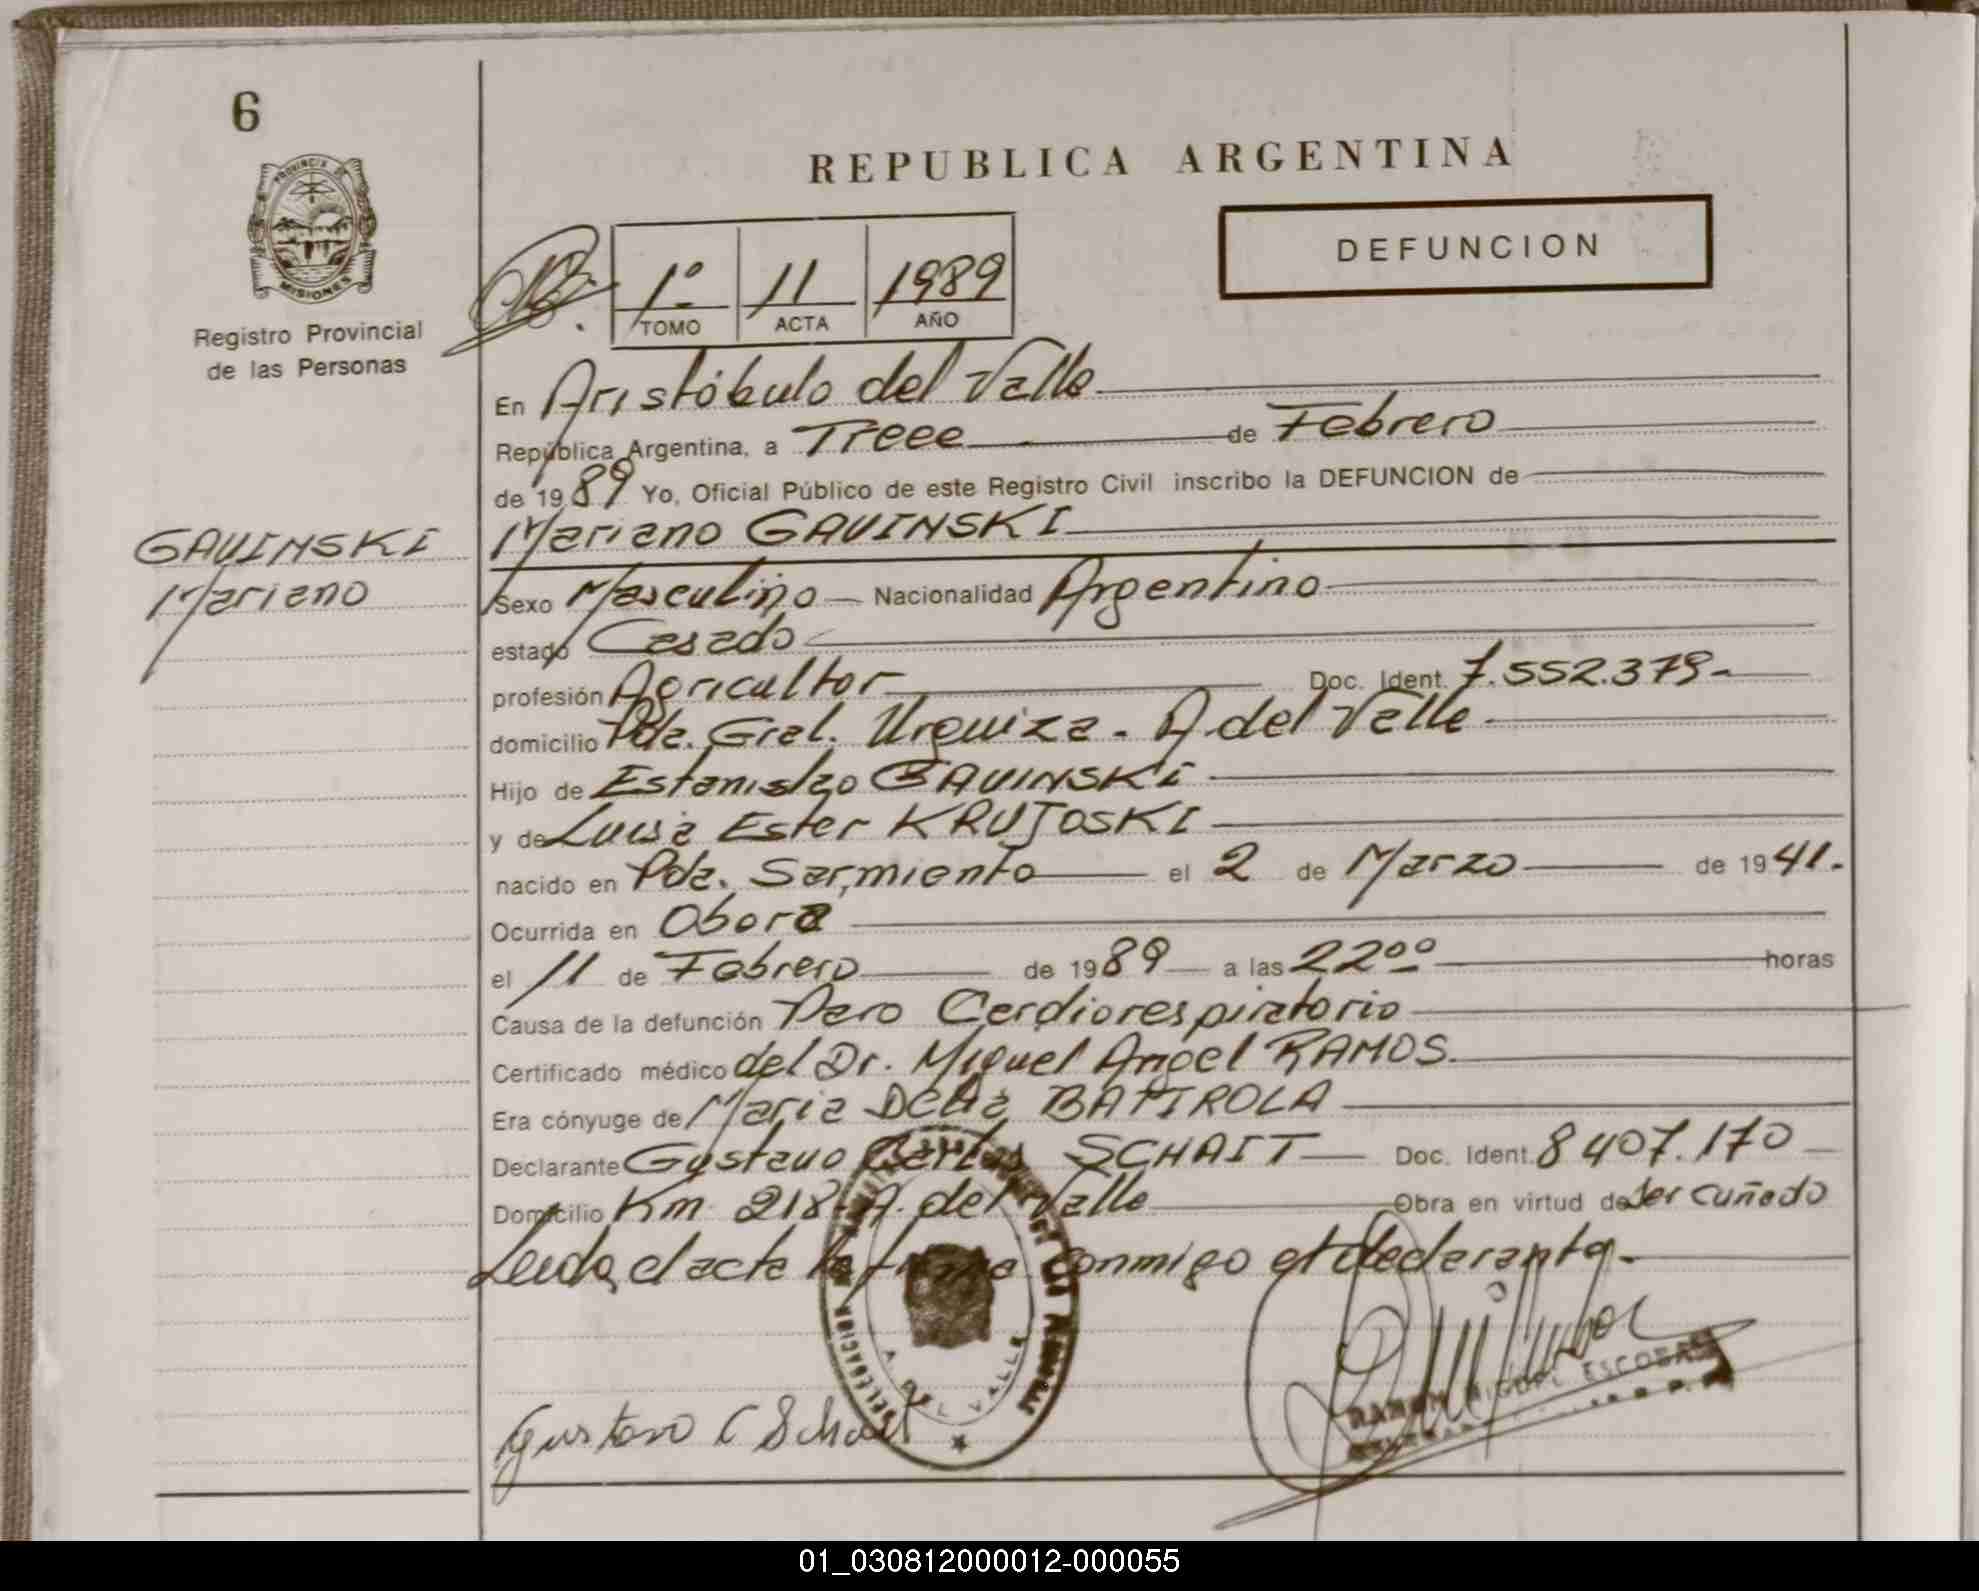 6
PROVINCIA DE
MISIONES
Registro Provincial
de las Personas
REPUBLICA ARGENTINA
DEFUNCION
1º 11 1989
TOMO ACTA AÑO
En Aristóbulo del Valle
República Argentina, a Trece de Febrero
de 1989 Yo, Oficial Público de este Registro Civil inscribo la DEFUNCION de
GAVINSKI
Mariano
Mariano GAVINSKI
Sexo Masculino Nacionalidad Argentino
estado Casado
profesión Agricultor Doc. Ident. 7.552.379-
domicilio Pda. Gral. Urquiza - A. del Valle
Hijo de Estanislao GAVINSKI
y de Luisa Ester KRUJOSKI
nacido en Pda. Sarmiento el 2 de Marzo de 1941.
Ocurrida en Oberá
el 11 de Febrero de 1989 a las 22ºº horas
Causa de la defunción Paro Cardiorespiratorio
Certificado médico del Dr. Miguel Angel RAMOS.
Era cónyuge de Maria Delia BATIROLA
Declarante Gustavo Carlos SCHAIT Doc. Ident. 8407.170
Domicilio Km 218-A. del Valle Obra en virtud de Ser cuñado
Leida el acta la firma conmigo el declarante.-
DELEGACION
A. DEL VALLE
Gustavo C Schait
RAMON MIGUEL ESCOBAR
01_030812000012-000055